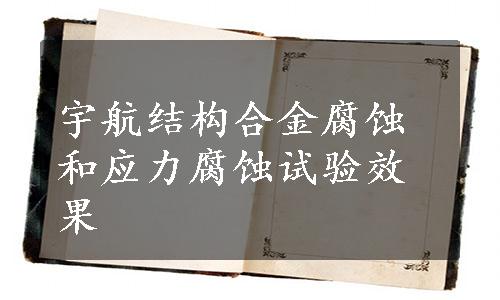 宇航结构合金腐蚀
和应力腐蚀试验效
果